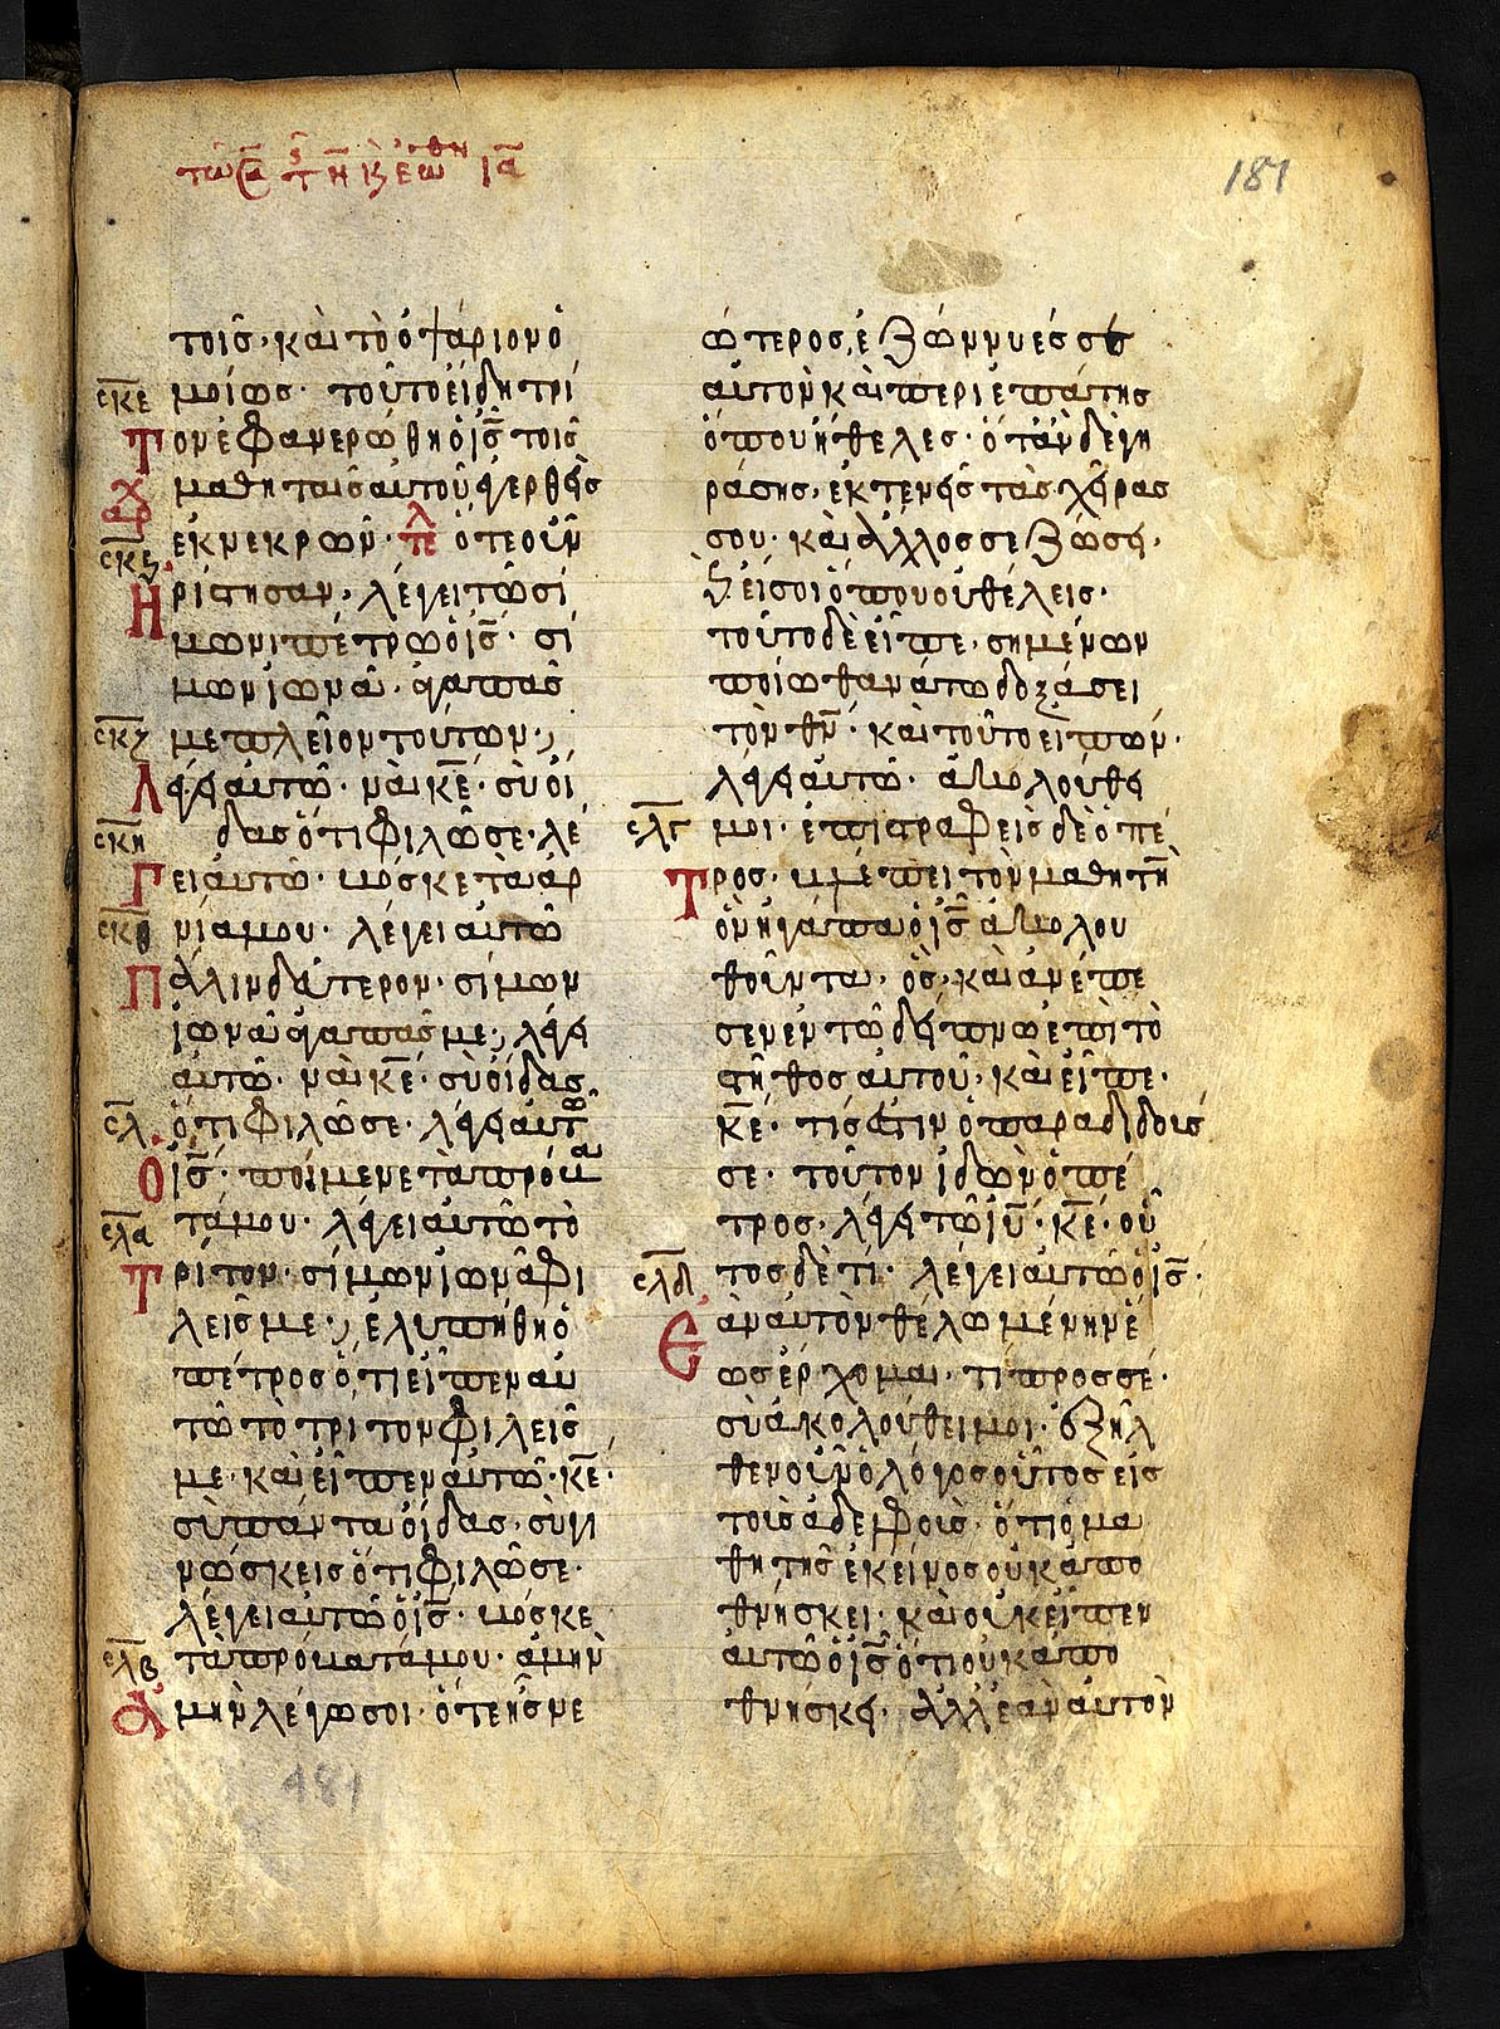 181
τοῖς· καὶ τὸ ὀψάριον ὁ
σκε μοίως· τοῦτο εἴδη τρί
Τον ἐφανερώθη ὁ ις τοῖς
μαθηταῖς αὐτοῦ ἐγερθεὶς
ἐκ νεκρῶν· τε ὅτε οὖν
σκζ
Ηρίστησαν, λέγει τῶ σί
μωνι πέτρω ὁ ις· σί
μων ἰωνᾶ· ἀγαπᾶς
σκζ με πλεῖον τούτων;
Λέγει αὐτῶ· ναὶ κε· σὺ οἶ
σκη δας ὅτι φιλῶ σε· λέ
Γει αὐτῶ· βόσκε τὰ ἀρ
σκθ νία μου· λέγει αὐτῶ
Πάλιν δεύτερον· σίμων
ἰωνᾶ ἀγαπᾶς με; λέγει
αὐτῶ· ναὶ κε· σὺ οἶδας
σλ ὅτι φιλῶ σε· λέγει αὐτῶ
Ὁ ις· ποίμενε τὰ πρόβα
σλα τά μου· λέγει αὐτῶ τὸ
Τρίτον· σίμων ἰωνᾶ φι
λεῖς με; ἐλυπήθη ὁ
πέτρος ὅτι εἶπεν αὐ
τῶ τὸ τρίτον φιλεῖς
με· καὶ εἶπεν αὐτῶ· κε·
σὺ πάντα οἶδας· σὺ γι
νώσκεις ὅτι φιλῶ σε·
λέγει αὐτῶ ὁ ις· βόσκε
σλβ τὰ πρόβατά μου· ἀμὴν
Ἀμὴν λέγω σοι· ὅτε ἦς νε
ώτερος, ἐζώννυες σε
αυτὸν καὶ περιεπάτης
ὅπου ἤθελες· ὅταν δὲ γη
ράσης, ἐκτενεῖς τὰς χεῖρας
σου· καὶ ἄλλος σε ζώσει,
ϗ εἴσοι ὅπου οὐ θέλεις·
τοῦτο δὲ εἶπε, σημένων
ποίω θανάτω δοξάσει
τὸν θν· καὶ τοῦτο εἰπών·
λέγει αὐτῶ· ἀκολούθει
σλγ μοι· ἐπιστραφεὶς δὲ ὁ πέ
Τρος· βλέπει τὸν μαθητὴ
ὃν ἠγάπα ὁ ις ἀκολου
θοῦντα· ὃς, καὶ ἀνέπε
σεν ἐν τῶ δείπνω ἐπὶ τὸ
στῆθος αὐτοῦ, καὶ εἶπε·
κε· τίς ἐστιν ὁ παραδιδούς
σε· τοῦτον ἰδὼν ὁ πέ
τρος· λέγει τῶ ιυ· κε· οὗ
τος δὲ τί· λέγει αὐτῶ ὁ ις·
σλδ
Ἐὰν αὐτὸν θέλω μένην ἕ
ως ἔρχομαι· τί πρός σέ·
σὺ ἀκολούθει μοι· ἐξῆλ
θεν οὖν ὁ λόγος οὗτος εἰς
τοὺς ἀδελφούς· ὅτι ὁ μα
θητὴς ἐκεῖνος οὐκ ἀπο
θνήσκει· καὶ οὐκ εἶπεν
αὐτῶ ὁ ις ὅτι οὐκ ἀπο
θνήσκει· ἀλλ' ἐὰν αὐτὸν
181